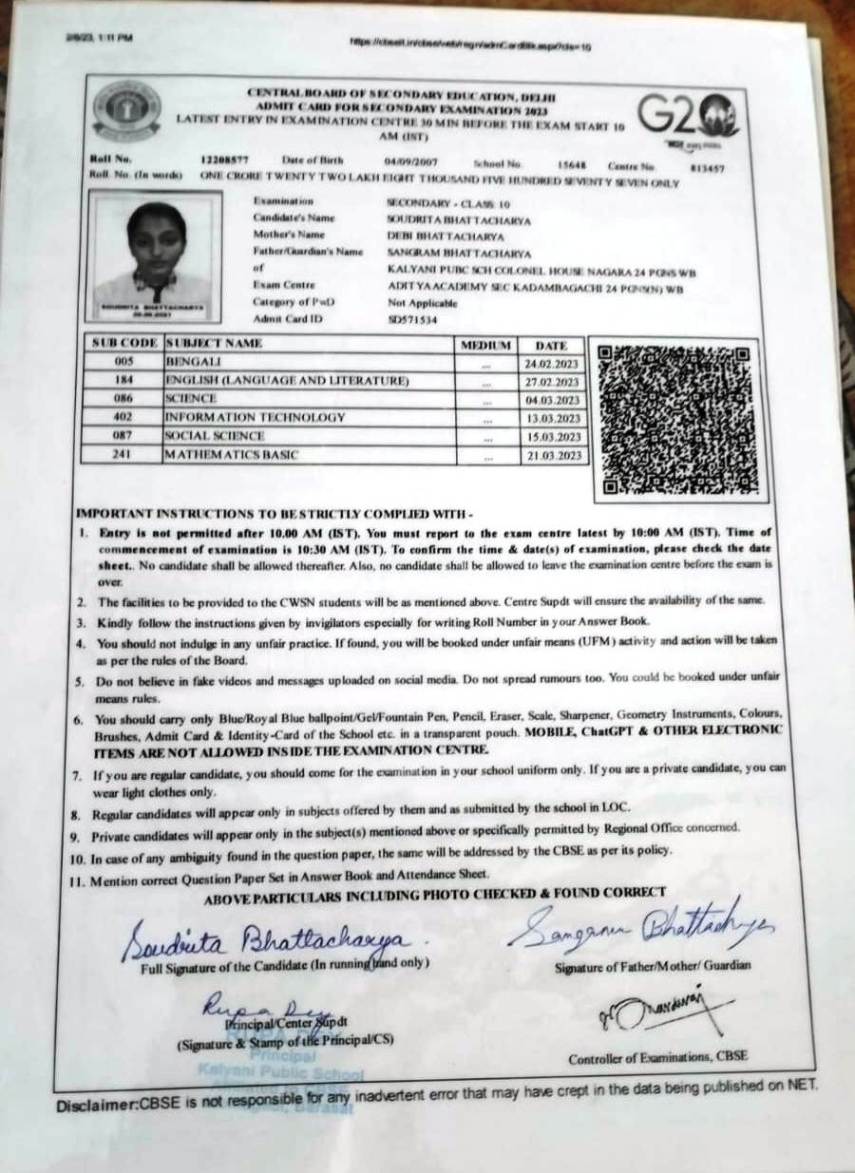 2/8/23, 1:11 PM
CENTRAL BOARD OF SECONDARY EDUCATION, DELHI
ADMIT CARD FOR SECONDARY EXAMINATION 2023
LATEST ENTRY IN EXAMINATION CENTRE 30 MIN BEFORE THE EXAM START 10
AM (IST)
G20
Roll No. 12208577 Date of Birth 04/09/2007 School No. 15648 Centre No. 813457
Roll. No. (In words) ONE CRORE TWENTY TWO LAKH EIGHT THOUSAND FIVE HUNDRED SEVENTY SEVEN ONLY
Examination SECONDARY - CLASS 10
Candidate's Name SOUDRITA BHATTACHARYA
Mother's Name DEBI BHATTACHARYA
Father/Guardian's Name SANGRAM BHATTACHARYA
of KALYANI PUBC SCH COLONEL HOUSE NAGARA 24 PGNS WB
Exam Centre ADITYA ACADEMY SEC KADAMBAGACHI 24 PGN(N) WB
Category of PwD Not Applicable
Admit Card ID SD571534
SOUDRITA BHATTACHARYA
SUB CODE SUBJECT NAME MEDIUM DATE
005 BENGALI ... 24.02.2023
184 ENGLISH (LANGUAGE AND LITERATURE) ... 27.02.2023
086 SCIENCE ... 04.03.2023
402 INFORMATION TECHNOLOGY ... 13.03.2023
087 SOCIAL SCIENCE ... 15.03.2023
241 MATHEMATICS BASIC ... 21.03.2023
IMPORTANT INSTRUCTIONS TO BE STRICTLY COMPLIED WITH -
1. Entry is not permitted after 10.00 AM (IST). You must report to the exam centre latest by 10:00 AM (IST). Time of
commencement of examination is 10:30 AM (IST). To confirm the time & date(s) of examination, please check the date
sheet.. No candidate shall be allowed thereafter. Also, no candidate shall be allowed to leave the examination centre before the exam is
over.
2. The facilities to be provided to the CWSN students will be as mentioned above. Centre Supdt will ensure the availability of the same.
3. Kindly follow the instructions given by invigilators especially for writing Roll Number in your Answer Book.
4. You should not indulge in any unfair practice. If found, you will be booked under unfair means (UFM) activity and action will be taken
as per the rules of the Board.
5. Do not believe in fake videos and messages uploaded on social media. Do not spread rumours too. You could be booked under unfair
means rules.
6. You should carry only Blue/Royal Blue ballpoint/Gel/Fountain Pen, Pencil, Eraser, Scale, Sharpener, Geometry Instruments, Colours,
Brushes, Admit Card & Identity-Card of the School etc. in a transparent pouch. MOBILE, ChatGPT & OTHER ELECTRONIC
ITEMS ARE NOT ALLOWED INSIDE THE EXAMINATION CENTRE.
7. If you are regular candidate, you should come for the examination in your school uniform only. If you are a private candidate, you can
wear light clothes only.
8. Regular candidates will appear only in subjects offered by them and as submitted by the school in LOC.
9. Private candidates will appear only in the subject(s) mentioned above or specifically permitted by Regional Office concerned.
10. In case of any ambiguity found in the question paper, the same will be addressed by the CBSE as per its policy.
11. Mention correct Question Paper Set in Answer Book and Attendance Sheet.
ABOVE PARTICULARS INCLUDING PHOTO CHECKED & FOUND CORRECT
Soudrita Bhattacharya.
Full Signature of the Candidate (In running hand only)
Bhattacharya
Signature of Father/Mother/ Guardian
Rupa Dey
Principal/Center Supdt
(Signature & Stamp of the Principal/CS)
Principal
Kalyani Public School
Controller of Examinations, CBSE
Disclaimer:CBSE is not responsible for any inadvertent error that may have crept in the data being published on NET.